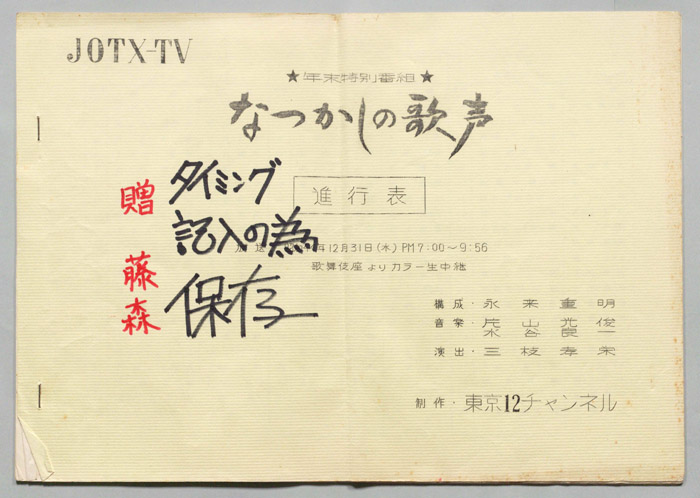 JOTX-TV
★年末特別番組★
なつかしの歌声
進行表
年12月31日(木)PM7:00〜9:56
歌舞伎座よりカラー生中継
構成・永来重明
音楽・片山光俊
水谷良一
演出・三枝孝栄
制作・東京12チャンネル
タイミング
記入の為
保存
贈
藤森